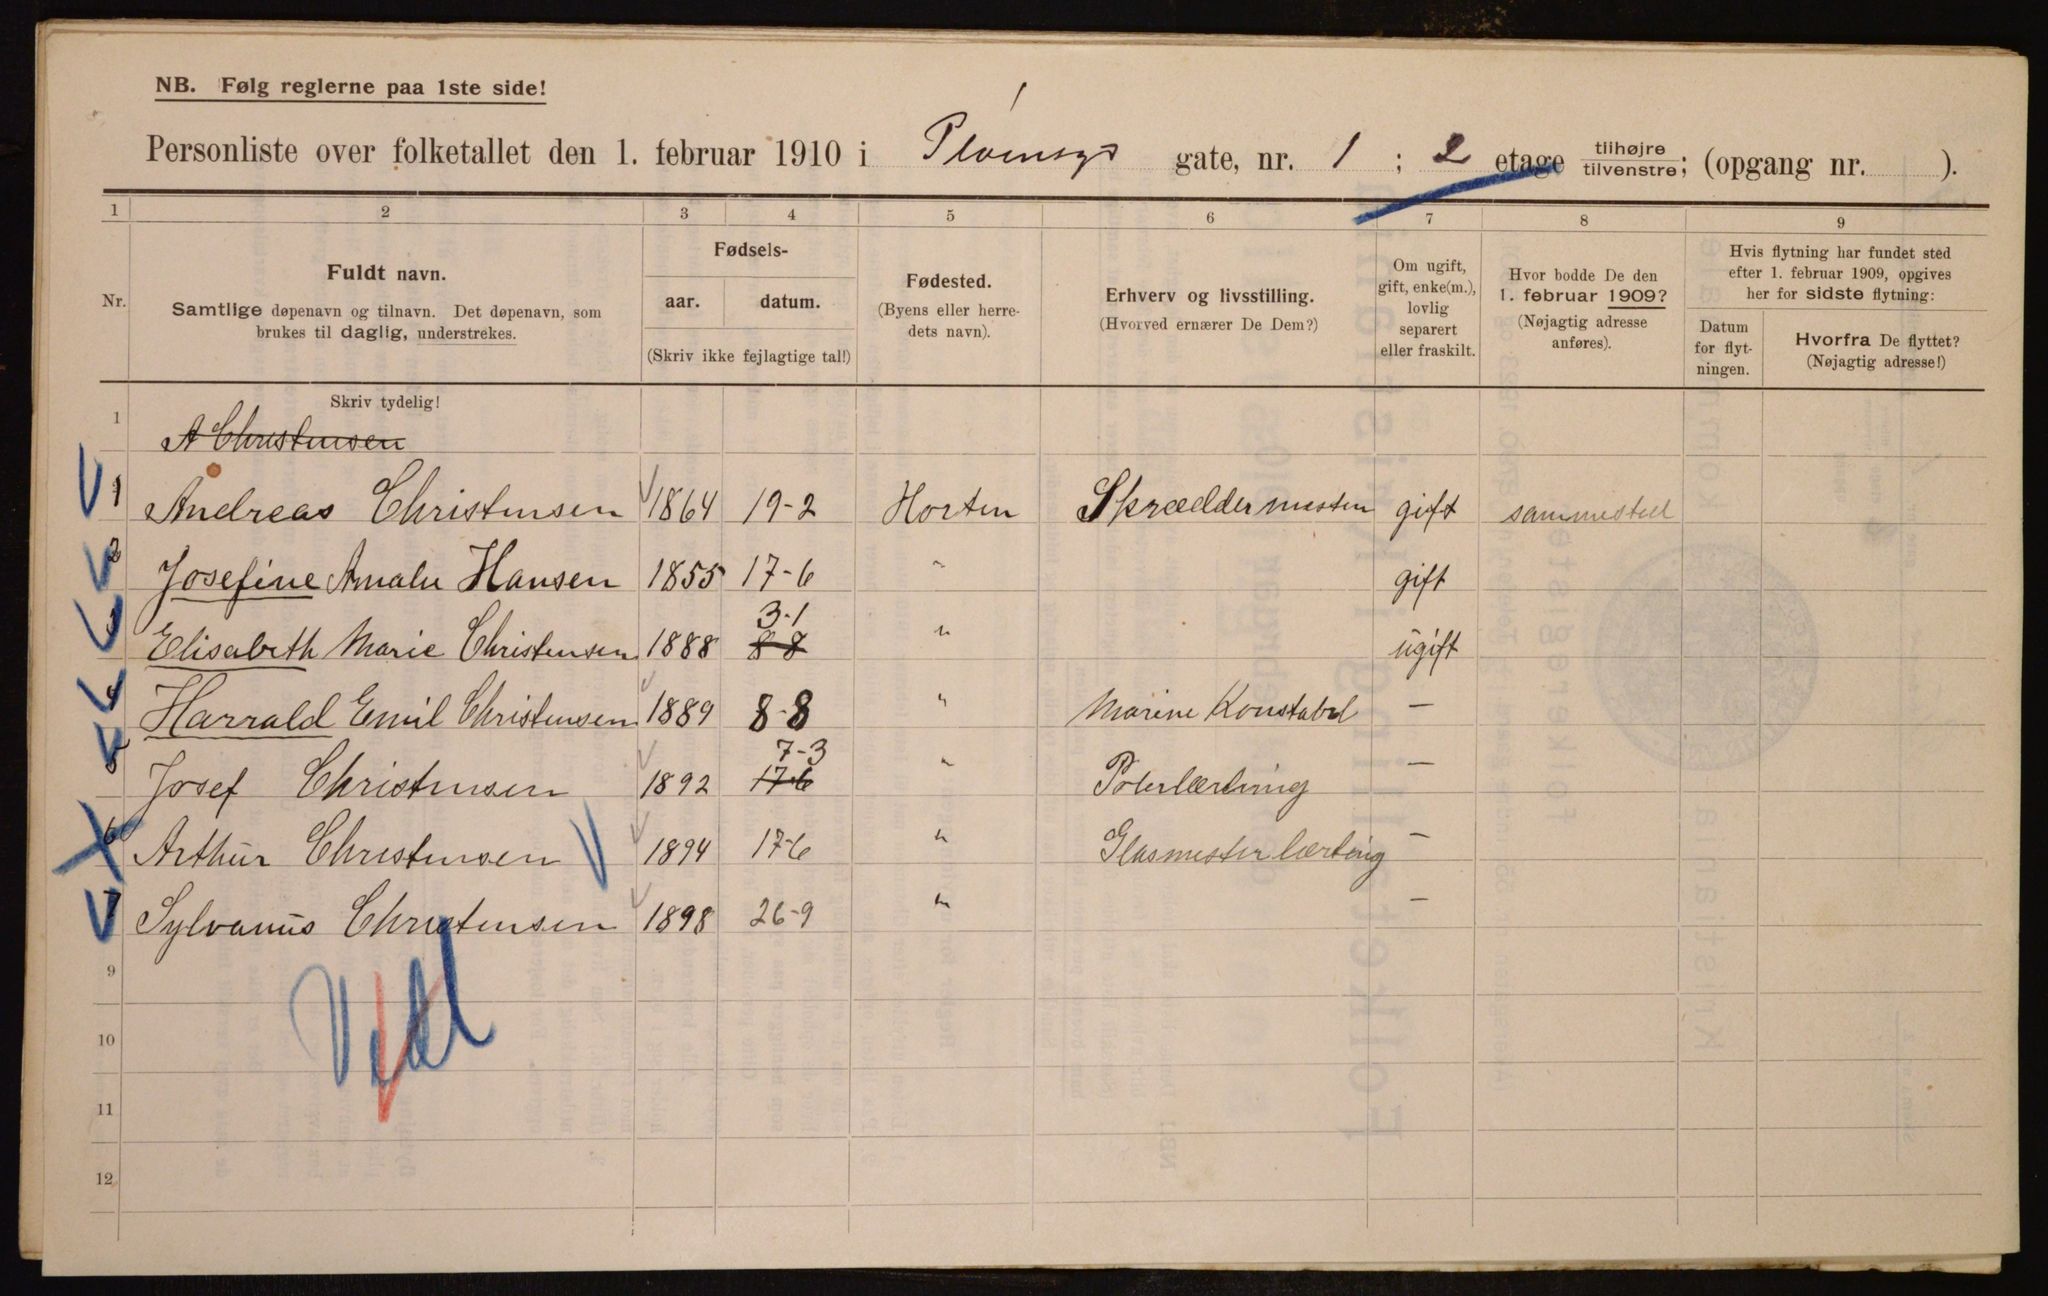 NB. Følg reglerne paa 1ste side!
Personliste over folketallet den 1. februar 1910 i Pløensgt gate, nr. 1; 2 etage tilhøjre tilvenstre; (opgang nr. ).
1 2 3 4 5 6 7 8 9
Nr.
Fuldt navn.
Samtlige døpenavn og tilnavn. Det døpenavn, som
brukes til daglig, understrekes.
Fødsels-
aar. datum.
(Skriv ikke fejlagtige tal!)
Fødested.
(Byens eller herre-
dets navn).
Erhverv og livsstilling.
(Hvorved ernærer De Dem?)
Om ugift,
gift, enke(m.),
lovlig
separert
eller fraskilt.
Hvor bodde De den
1. februar 1909?
(Nøjagtig adresse
anføres).
Hvis flytning har fundet sted
efter 1. februar 1909, opgives
her for sidste flytning:
Datum
for flyt-
ningen.
Hvorfra De flyttet?
(Nøjagtig adresse!)
Skriv tydelig!
1 A Christensen
1 Andreas Christensen 1864 19-2 Horten Skræddermester gift sammested
2 Josefine Amalie Hansen 1855 17-6 " gift
3 Elisabeth Marie Christensen 1888 8-8 3-1 " ugift
4 Harrald Emil Christensen 1889 8-8 " Marine Konstabel —
5 Josef Christensen 1892 17-6 7-3 " —
6 Arthur Christensen 1894 17-6 " Glasmesterlærling —
7 Sylvanus Christensen 1898 26-9 " —
9
10
11
12